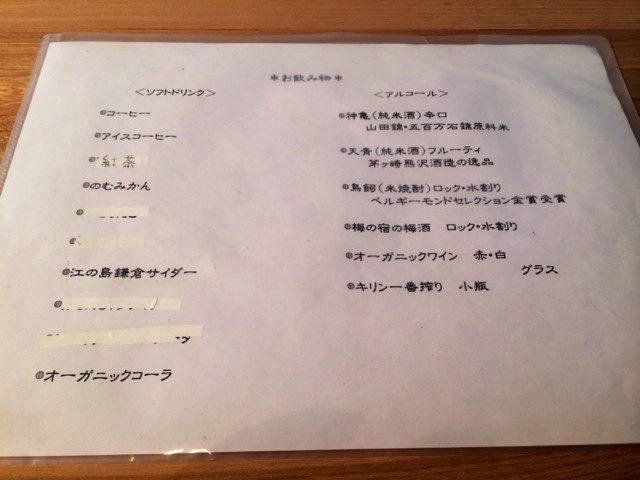 ＊お飲み物＊
＜ソフトドリンク＞
◎コーヒー
◎アイスコーヒー
紅茶
◎のむみかん
◎江の島鎌倉サイダー
◎オーガニックコーラ
＜アルコール＞
◎神亀（純米酒）辛口
山田錦・五百万石錦原料米
◎天青（純米酒）フルーティ
茅ヶ崎熊沢酒造の逸品
◎鳥飼（米焼酎）ロック・水割り
ベルギーモンドセレクション金賞受賞
◎梅の宿の梅酒　ロック・水割り
◎オーガニックワイン　赤・白
グラス
◎キリン一番搾り　小瓶